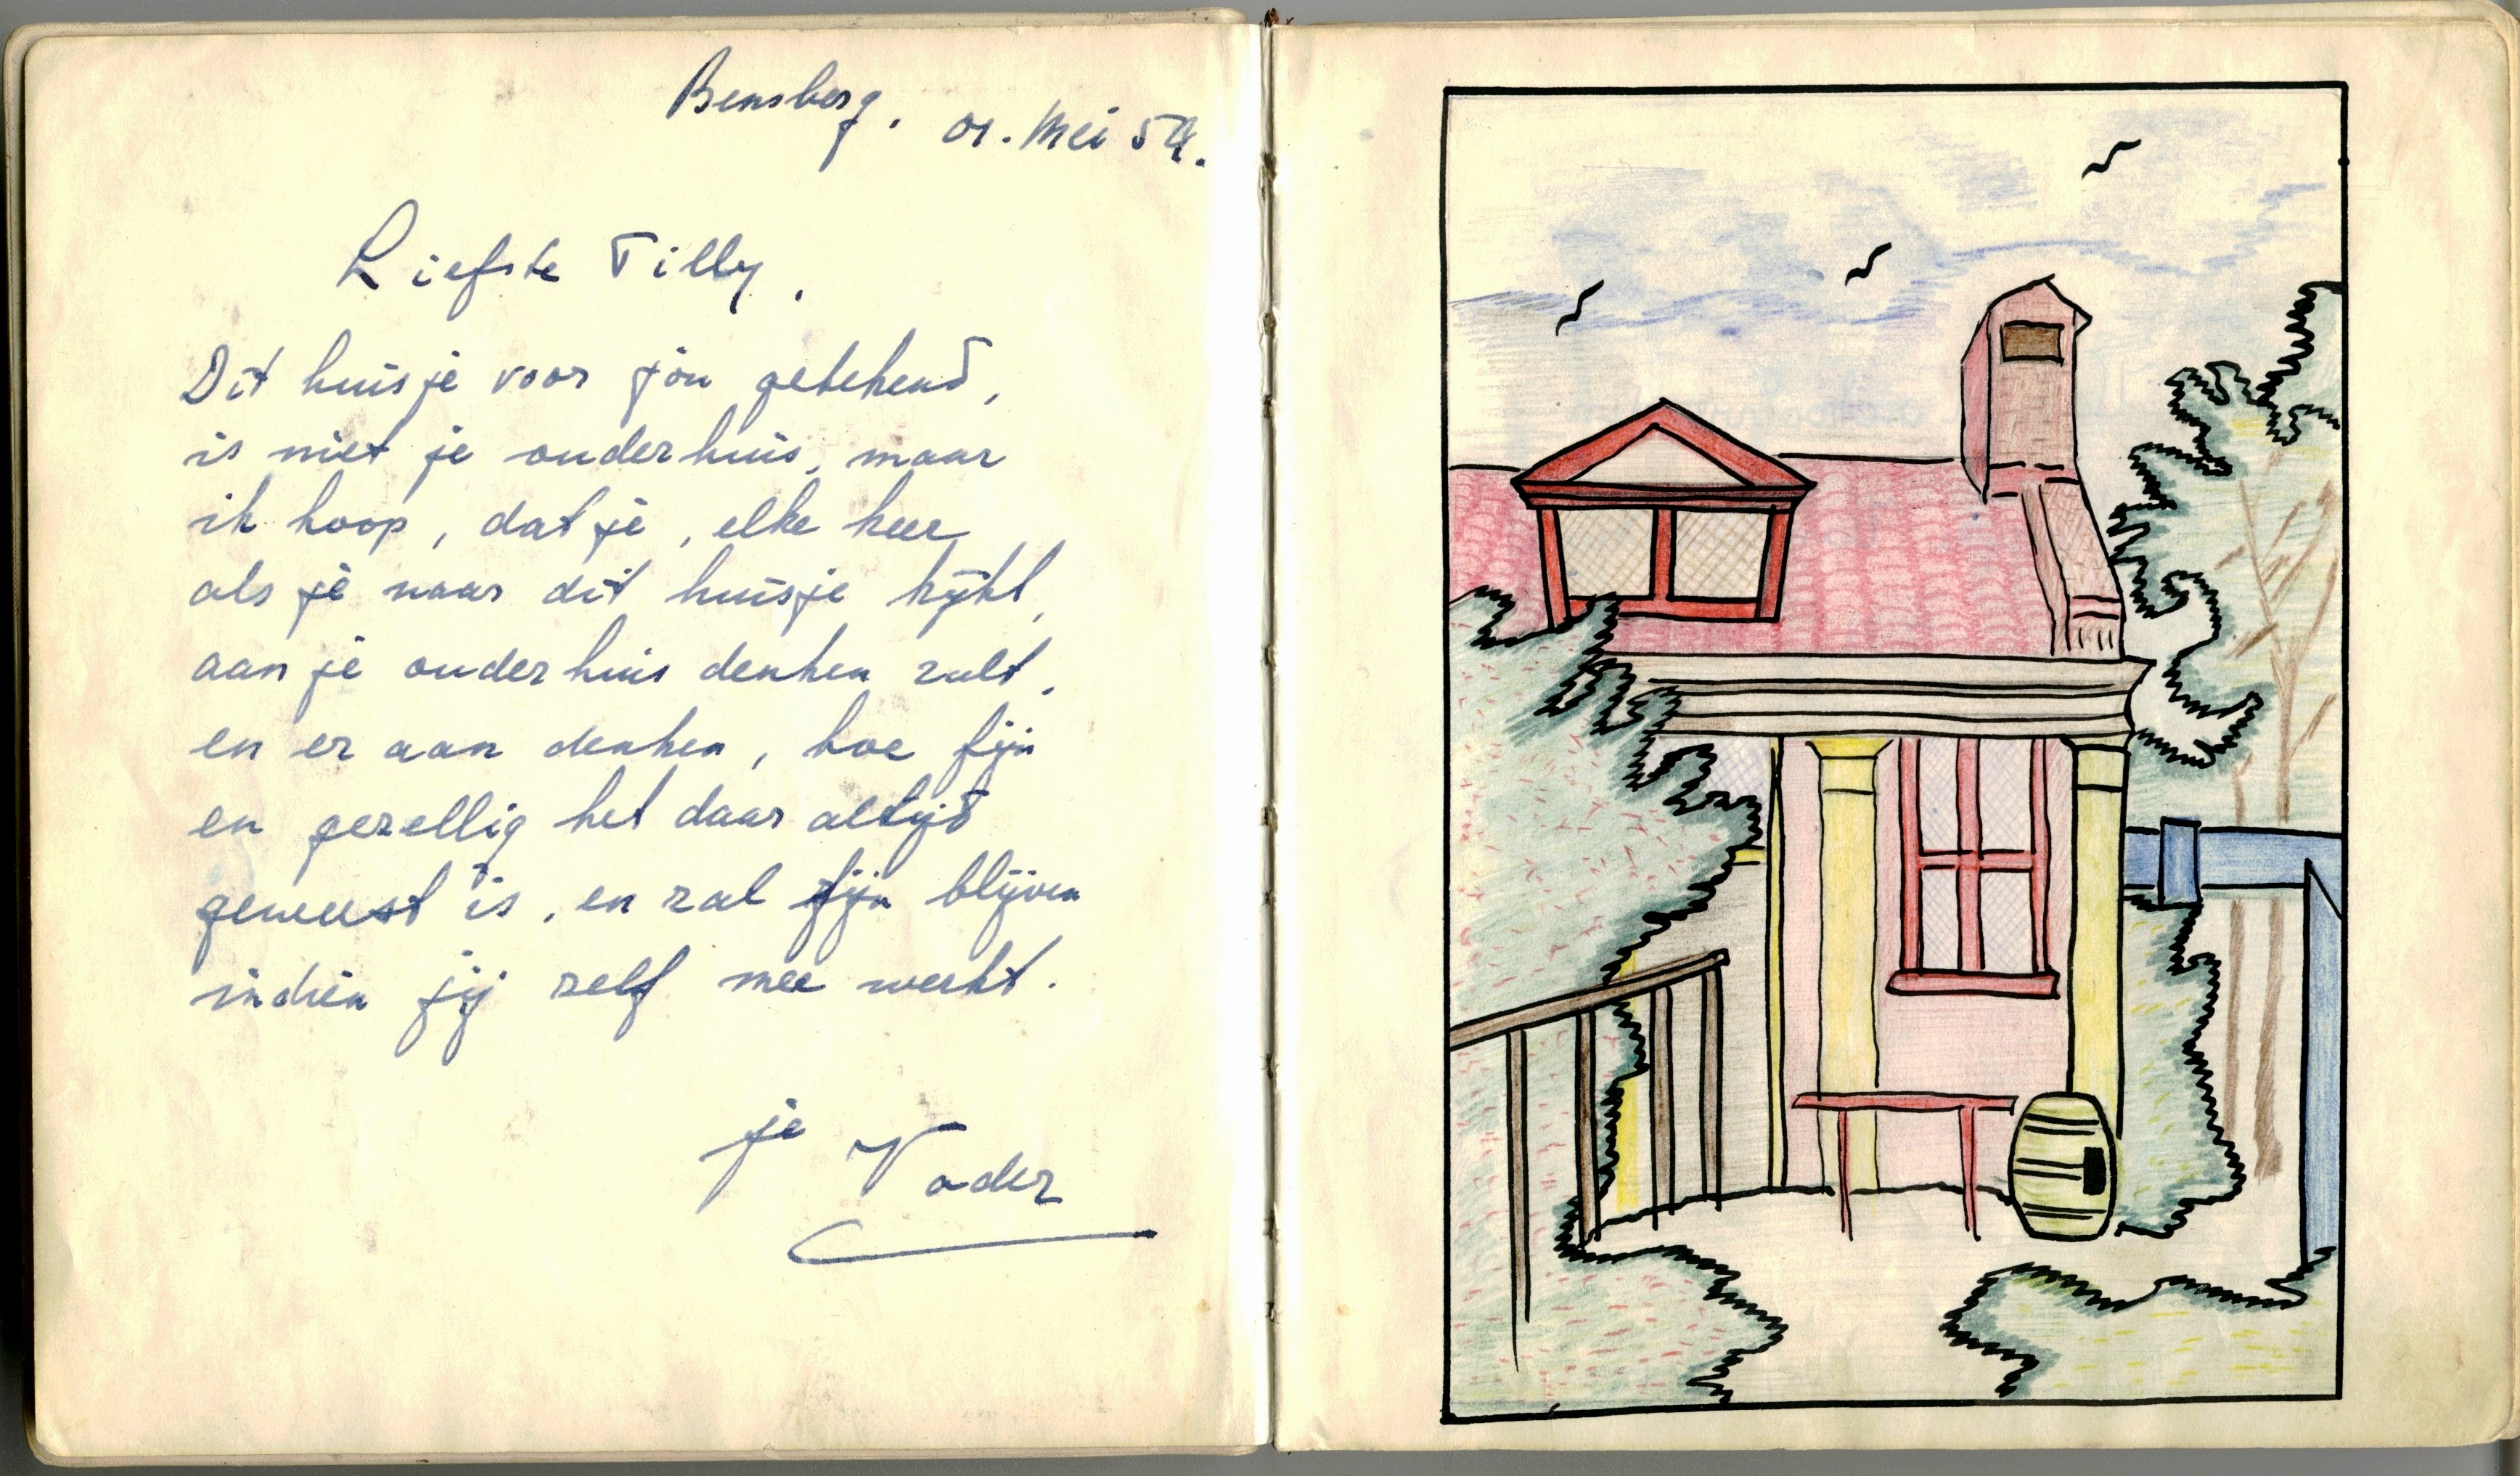 Bensberg. 01. Mei 54.
Liefste Tilly,
Dit huisje voor jou getekend,
is niet je ouderhuis, maar
ik hoop, dat je, elke keer
als je naar dit huisje kijkt,
aan je ouderhuis denken zult,
en er aan denken, hoe fijn
en gezellig het daar altijd
geweest is, en zal fijn blijven
indien jij zelf mee werkt.
je Vader